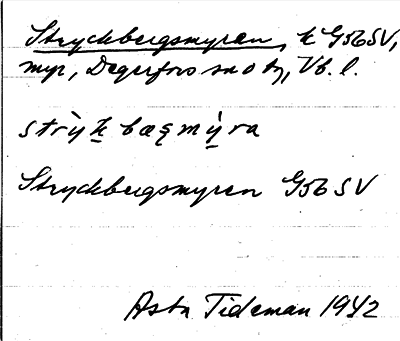 Stryckbergsmyren, k G56SV,
myr, Degerfors sn o tg, Vb. l.
strỳk bæʂmỳra
Stryckbergsmyren G56SV
Asta Tideman 1942